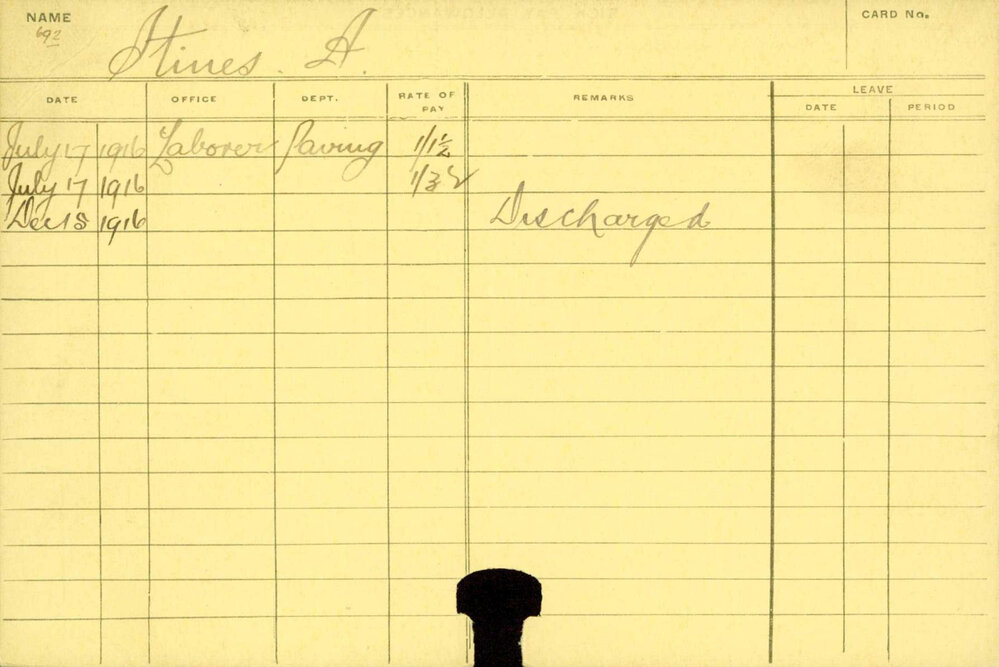 NAME CARD No.
692
Stines. A.
DATE OFFICE DEPT. RATE OF PAY REMARKS LEAVE
DATE PERIOD
July 17 1916 Laborer Paving 1/1½
July 17 1916
Dec 18 1916 Discharged